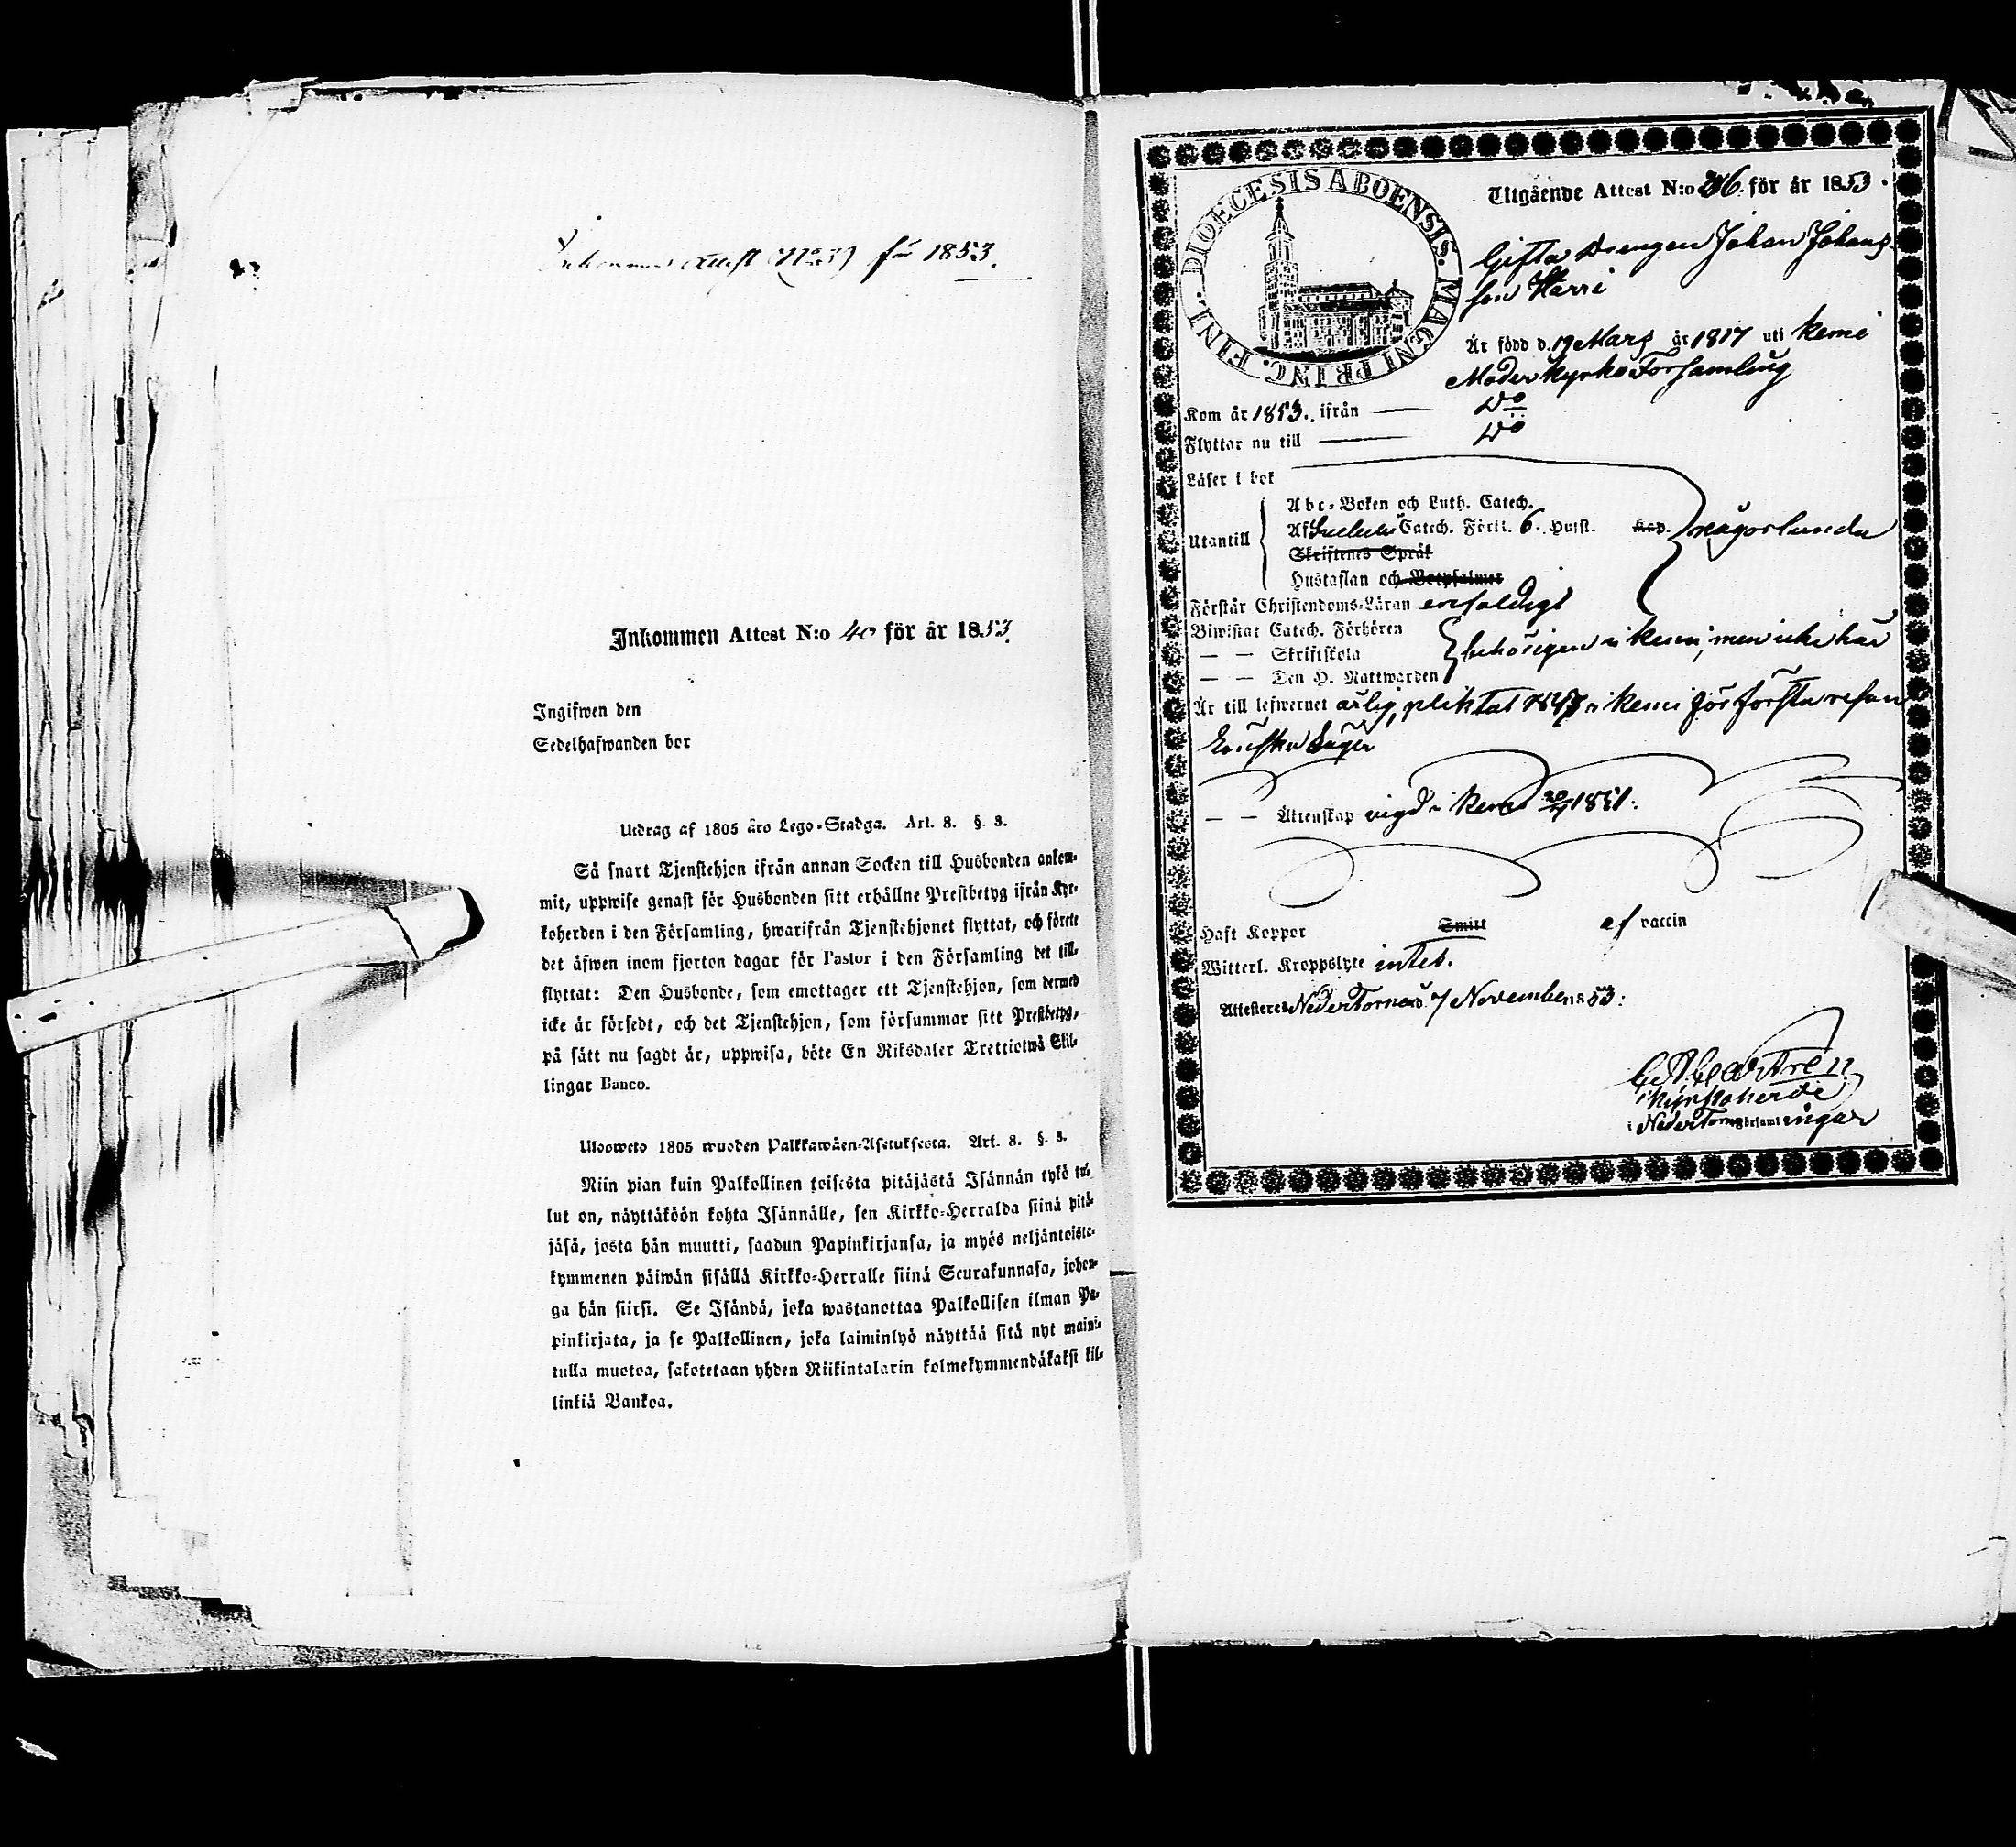 Inkommen Attest (No 39) för 1853.
Inkommen Attest N:o 40 för år 1853.
Ingifwen den
Sedelhafwanden bor
Utdrag af 1805 års Lego-Stadga. Art. 8. §. 3.
Så snart Tjenstehjon ifrån annan Socken till Husbonden ankom-
mit, uppwise genast för Husbonden sitt erhållne Prestbetyg ifrån Kyr-
koherden i den Församling, hwarifrån Tjenstehjonet flyttat, och förete
det äfwen inom fjorton dagar för Pastor i den Församling det till-
flyttat: Den Husbonde, som emottager ett Tjenstehjon, som dermed
icke är försedt, och det Tjenstehjon, som försummar sitt Prestbetyg,
på sätt nu sagdt är, uppwisa, böte En Riksdaler Trettiotwå Skil-
lingar Banco.
Ulosweto 1805 wuoden Palkkawäen-Asetuksesta. Art. 8. §. 3.
Niin pian kuin Palkollinen toisesta pitäjästä Isännän tykö tul-
lut on, näyttäköön kohta Isännälle, sen Kirkko-Herralda siinä pitä-
jäsä, josta hän muutti, saadun Papinkirjansa, ja myös neljäntoista-
kymmenen päiwän sisällä Kirkko-Herralle siinä Seurakunnasa, johon-
ga hän siirsi. Se Isändä, joka wastanottaa Palkollisen ilman Pa-
pinkirjata, ja se Palkollinen, joka laiminlyö näyttää sitä nyt maini-
tulla muotoa, sakotetaan yhden Riikintalarin kolmekymmendäkaksi kil-
linkiä Bankoa.
DIOECESIS ABOENSIS. MAGNI PRINC. FINL.
Utgående Attest N:o 26 för år 1853.
Gifta Drengen Johan Johans
son Harri
Är född d. 19 Mars år 1817 uti Kemi
Moderkyrko Församling
Kom år 1853. ifrån — Do
Flyttar nu till — Do
Läser i bok
Abc-Boken och Luth. Catech.
Utantill Af Svebelii Catech. Förkl. 6. Hufst. Kap. någorlunda
Skriftenes Språk
Hustaflan och Botpsalmer
Förstår Christendoms-Läran enfaldigt
Biwistat Catech. Förhören
— — Skriftskola behörigen i Kemi, men icke här
— — Den H. Nattwarden
Är till lefwernet ärlig, pliktat 1847 i Kemi för första resan
— — Äktenskap vigd i Kemi 1851.
Haft Koppor Smitt af vaccin
Witterl. Kroppslyte intet.
Attesteras Neder Torneå d. 7 November 1853:
Kyrkoherde
i Neder Torneå Församlingar